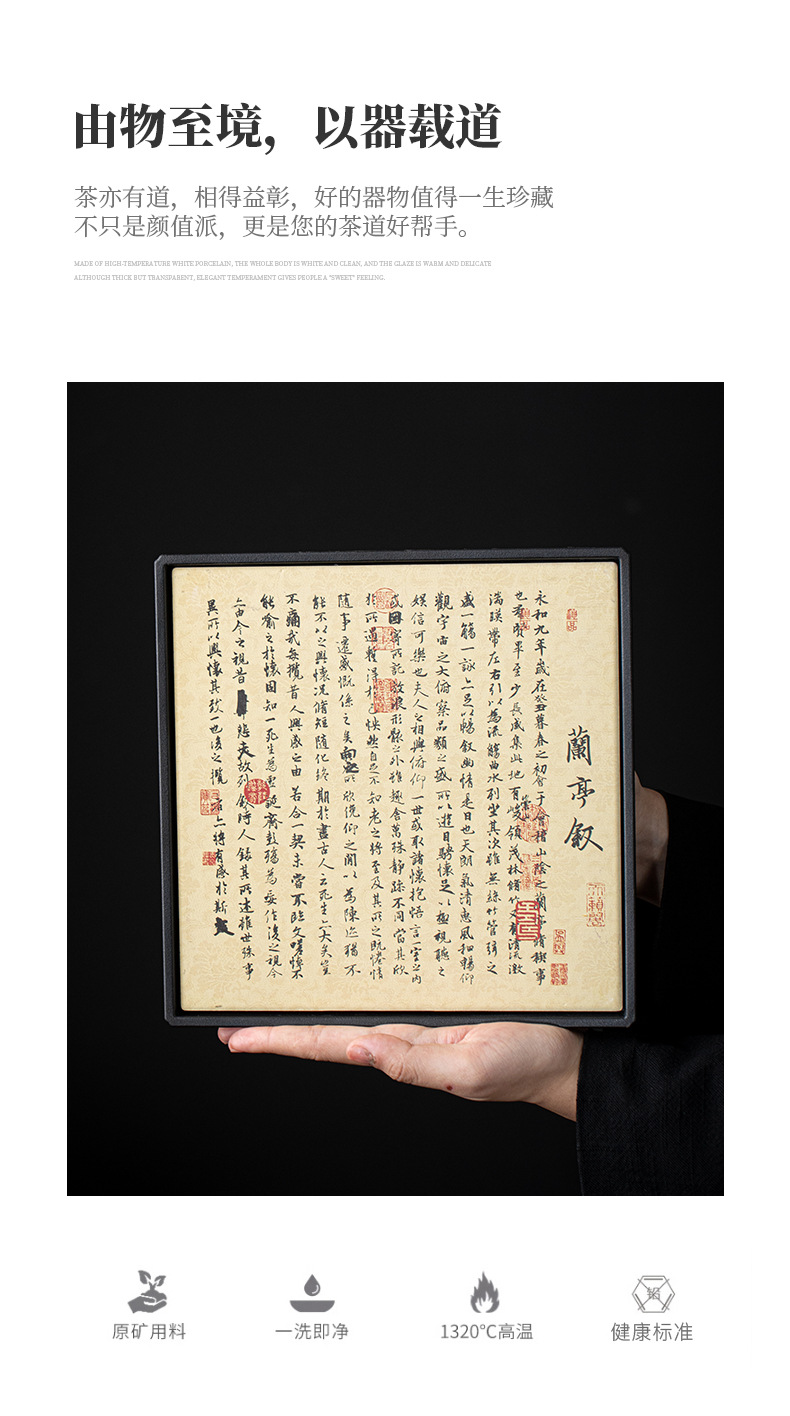 由物至境，以器载道
茶亦有道，相得益彰，好的器物值得一生珍藏
不只是颜值派，更是您的茶道好帮手。
MADE OF HIGH-TEMPERATURE WHITE PORCELAIN, THE WHOLE BODY IS WHITE AND CLEAN, AND THE GLAZE IS WARM AND DELICATE
ALTHOUGH THICK BUT TRANSPARENT, ELEGANT TEMPERAMENT GIVES PEOPLE A "SWEET" FEELING.
蘭亭叙
永和九年歲在癸丑暮春之初會于會稽山陰之蘭亭脩稧事
也羣賢畢至少長咸集此地有崇山峻領茂林脩竹又有清流激
湍暎帶左右引以為流觴曲水列坐其次雖無絲竹管弦之
盛一觴一詠上足以暢叙幽情是日也天朗氣清惠風和暢仰
觀宇宙之大俯察品類之盛所以遊目騁懷足以極視聽之
娛信可樂也夫人之相與俯仰一世或取諸懷抱悟言一室之內
或因寄所託放浪形骸之外雖趣舍萬殊靜躁不同當其欣
於所遇暫得於己怏然自足不知老之將至及其所之既惓情
隨事遷感慨係之矣向之所欣俛仰之閒以為陳迹猶不
能不以之興懷況脩短隨化終期於盡古人云死生亦大矣豈
不痛哉每攬昔人興感之由若合一契未嘗不臨文嗟悼不
能喻之於懷固知一死生為虛誕齊彭殤為妄作後之視今
亦由今之視昔悲夫故列叙時人錄其所述雖世殊事
異所以興懷其致一也後之攬者亦將有感於斯文
原矿用料
一洗即净
1320℃高温
铅
健康标准